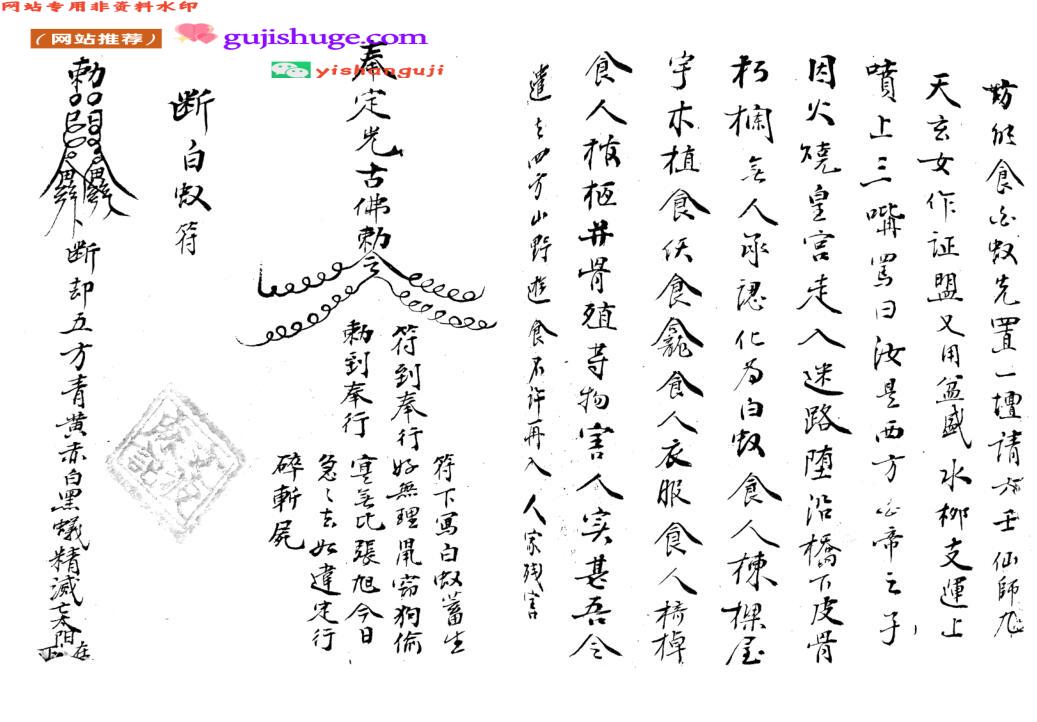 网站专用非资料水印
（网站推荐）
gujishuge.com
yishanguji
食白蚁先置一坛請六壬仙師九
天玄女作证盟又用盆盛水柳支運上
噴上三嘴罵曰汝是西方白帝之子
因火燒皇宮走入迷路堕沿橋下皮骨
朽欄無人承認化為白蚁食人棟樑屋
宇木植食伏食龕食人衣服食人椅棹
食人棺栢并骨殖等物害人实甚吾令
遣去四方山野遊食不许再入人家残害
奉定光古佛勅令
符到奉行
勅到奉行
符下寫白蚁畜生
好無理鼠窃狗偷
宣無比張旭今日
急〻去如違定行
碎斬屍
断白蚁符
勅
断却五方青黄赤白黑蟻精滅亡